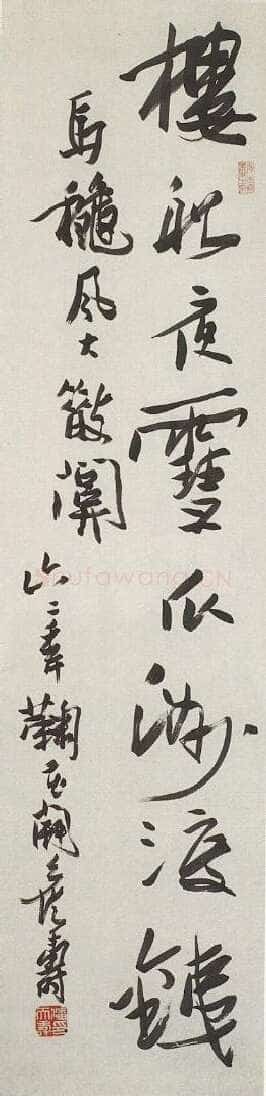 樓船夜雪瓜洲渡鐵
馬穐風大散關
六二年 壽
shufawang.CN